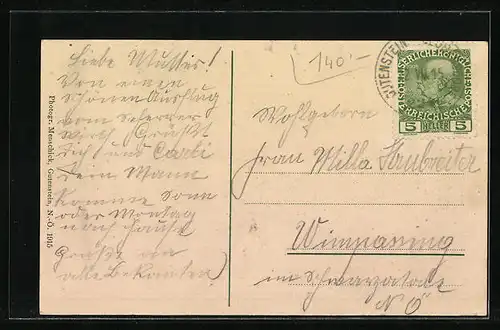 Liebe Mutter!
Von einem
schönen Ausflug
vom
Wirth Grüßt
Dich und Carli
Dein Mann
Komme Sonn
oder Montag
nach Hause
Grüße an
alle Bekannten
Photogr. Menschick, Gutenstein, N.-Ö. 1915
140'-
GUTENSTEIN
KAISERLICHE KÖNIGLICHE
ÖSTERREICHISCHE
5 HELLER 5
Wohlgeboren
Frau Milla
Wimpassing
im Schwarzatale
N Ö